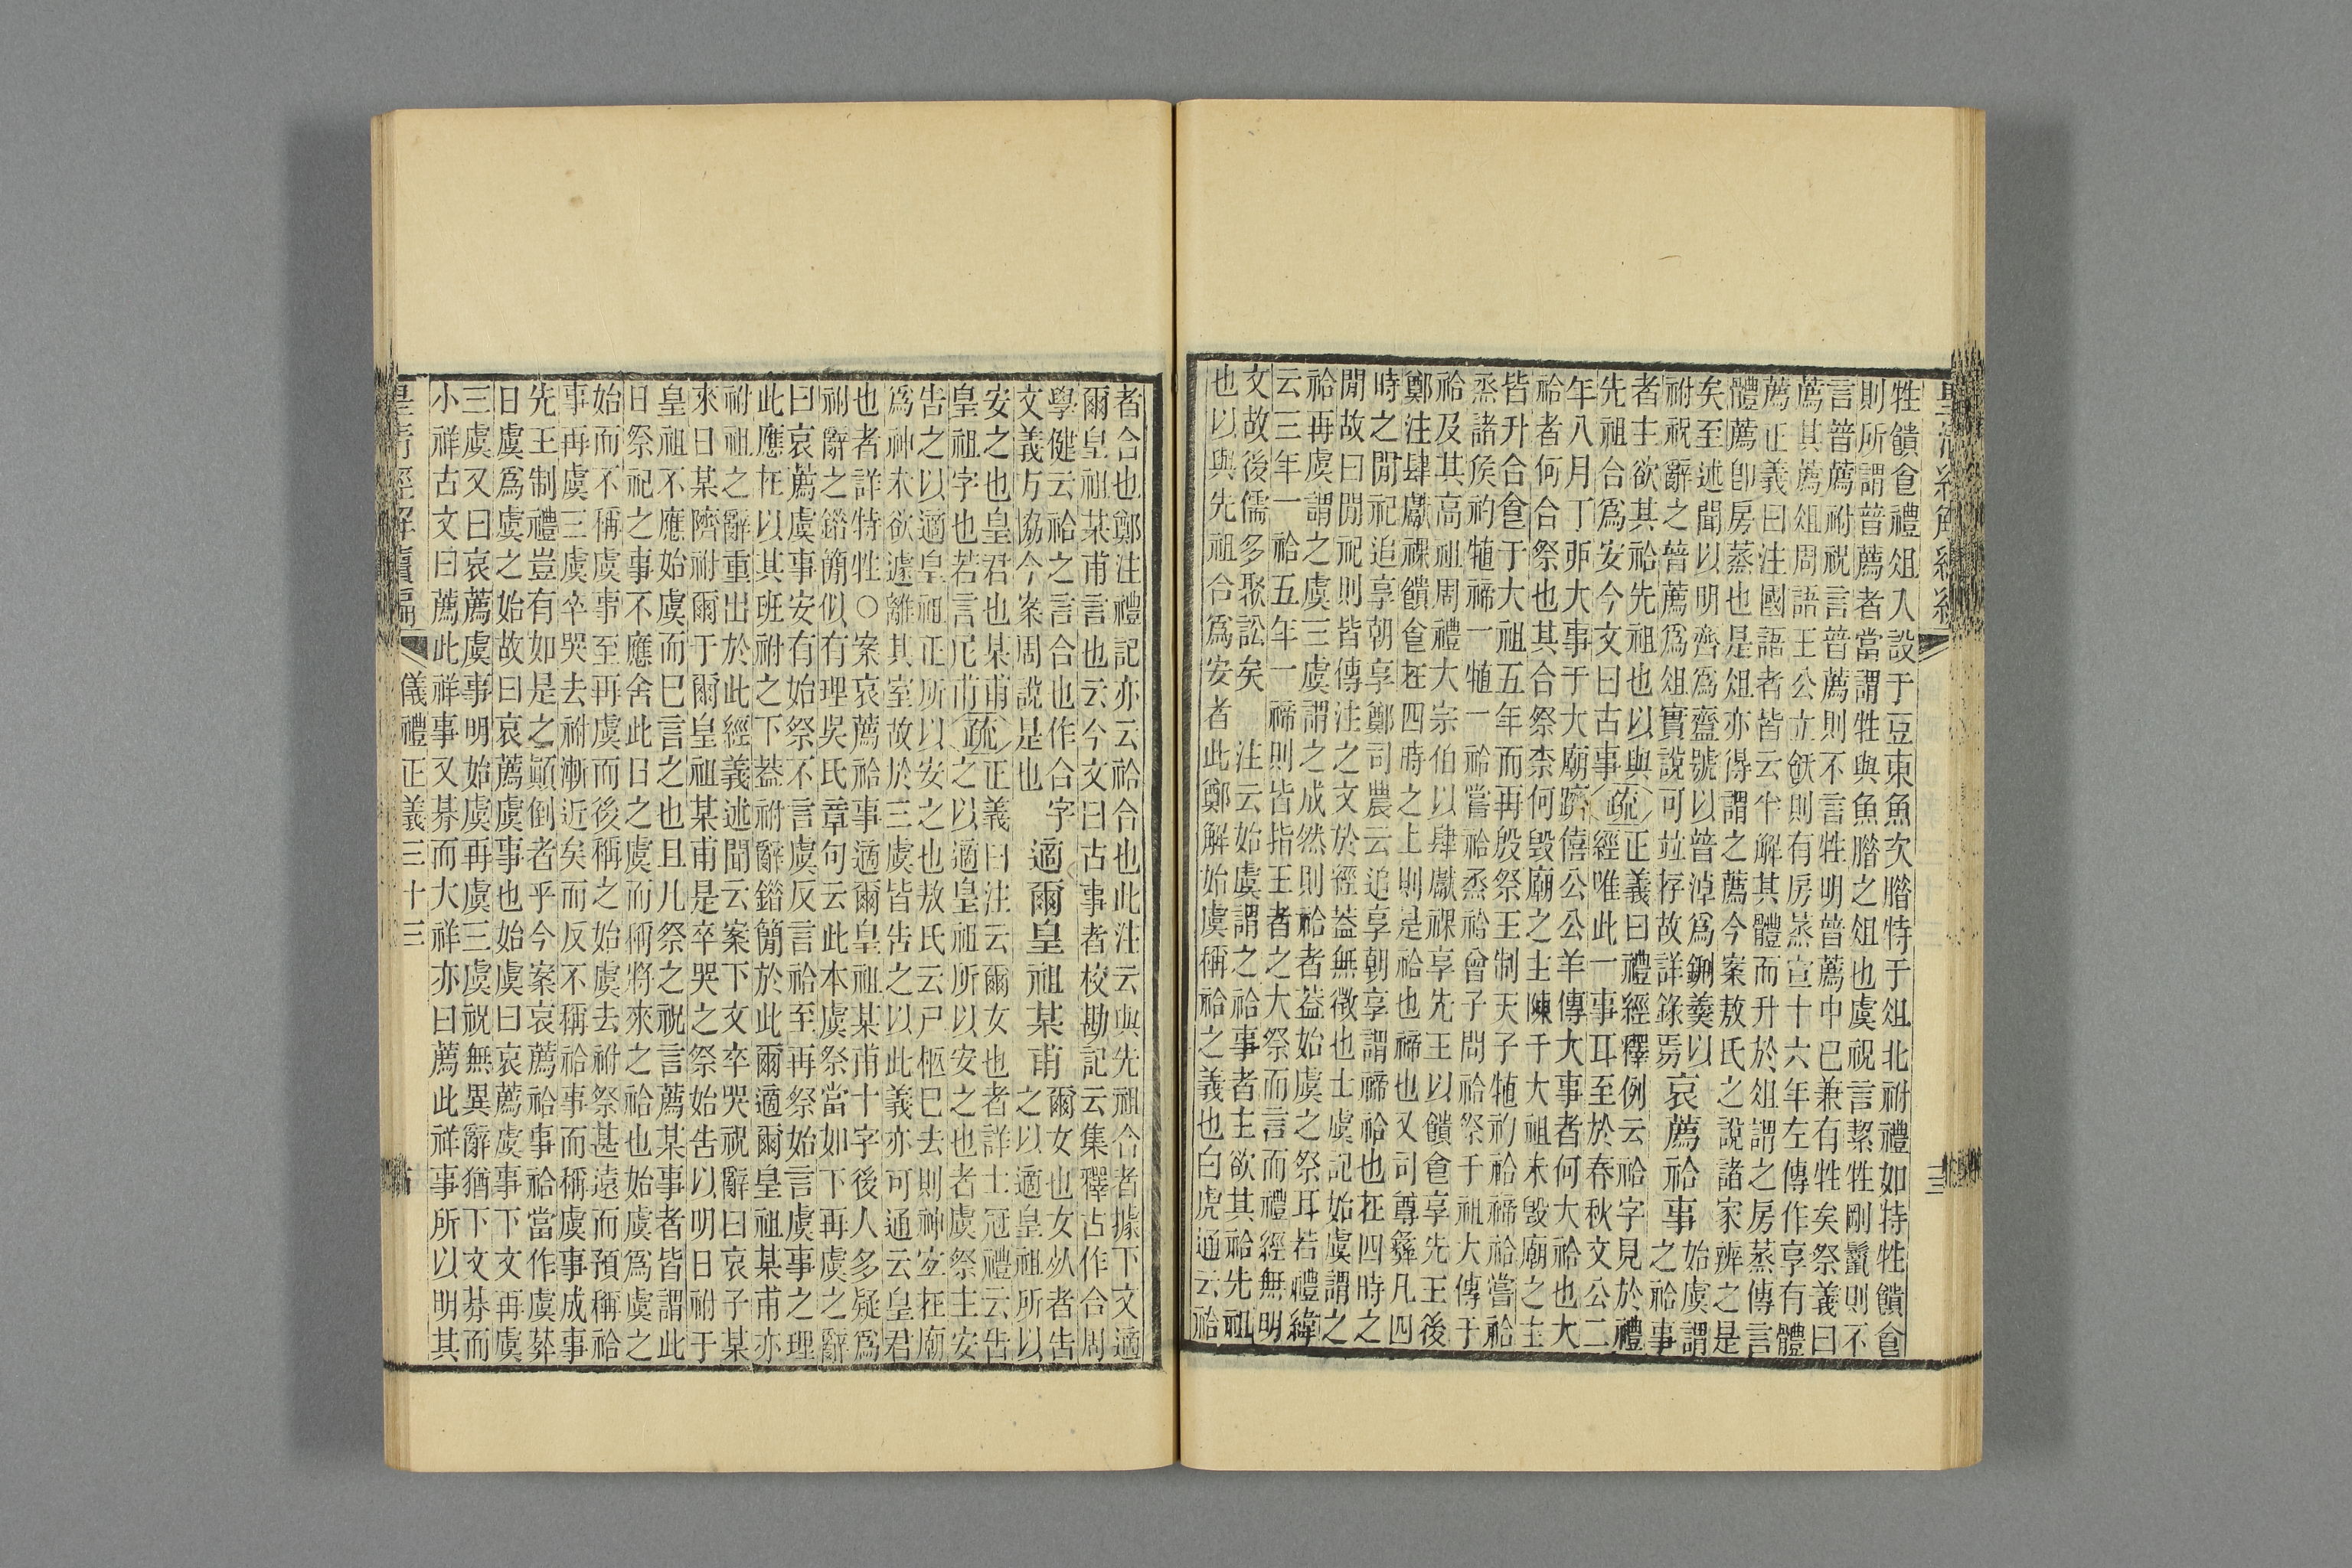 皇清經解續編
三
牲饋食禮俎入設于豆東魚次腊特于俎北祔禮如特牲饋食
則所謂普薦者當謂牲與魚腊之俎也虞祝言絜牲剛鬣則不
言普薦祔祝言普薦則不言牲明普薦中已兼有牲矣祭義曰
薦其薦俎周語王公立飫則有房烝宣十六年左傳作享有體
薦正義曰注國語者皆云半解其體而升於俎謂之房蒸傳言
體薦卽房蒸也是俎亦得謂之薦今案敖氏之說諸家辨之是
矣至述聞以明齊爲齍號以普淖爲鉶羹以
祔祝辭之普薦爲俎實說可竝存故詳錄焉
哀薦祫事
始虞謂
之祫事
者主欲其祫先祖也以與
先祖合爲安今文曰古事
疏
正義曰禮經釋例云祫字見於禮
經唯此一事耳至於春秋文公二
年八月丁卯大事于大廟躋僖公公羊傳大事者何大祫也大
祫者何合祭也其合祭柰何毀廟之主陳于大祖未毀廟之主
皆升合食于大祖五年而再殷祭王制天子犆礿祫禘祫嘗祫
烝諸侯礿犆禘一犆一祫嘗祫烝祫曾子問祫祭于祖大傳于
祫及其高祖周禮大宗伯以肆獻祼享先王以饋食享先王後
鄭注肆獻祼饋食在四時之上則是祫也禘也又司尊彝凡四
時之閒祀追享朝享鄭司農云追享朝享謂禘祫也在四時之
閒故曰閒祀則皆傳注之文於經葢無徵也士虞記始虞謂之
祫再虞謂之虞三虞謂之成然則祫者葢始虞之祭耳若禮緯
云三年一祫五年一禘則皆指王者之大祭而言而禮經無明
文故後儒多聚訟矣 注云始虞謂之祫事者主欲其祫先祖
也以與先祖合爲安者此鄭解始虞稱祫之義也白虎通云祫
者合也鄭注禮記亦云祫合也此注云與先祖合者據下文適
爾皇祖某甫言也云今文曰古事者校勘記云集釋古作合周
學健云祫之言合也作合字
文義方協今案周說是也
適爾皇祖某甫
爾女也女者告
之以適皇祖所以
安之也皇君也某甫
皇祖字也若言尼甫
疏
正義曰注云爾女也者詳士冠禮云告
之以適皇祖所以安之也者虞祭主安
告之以適皇祖正所以安之也敖氏云尸柩已去則神宜在廟
爲神未欲遽離其室故於三虞皆告之以此義亦可通云皇君
也者詳特牲○案哀薦祫事適爾皇祖某甫十字後人多疑爲
祔辭之錯簡似有理吳氏章句云此本虞祭當如下再虞之辭
曰哀薦虞事安有始祭不言虞反言祫至再祭始言虞事之理
此應在以其班祔之下葢祔辭錯簡於此爾適爾皇祖某甫亦
祔祖之辭重出於此經義述聞云案下文卒哭祝辭曰哀子某
來日某隮祔爾于爾皇祖某甫是卒哭之祭始告以明日祔于
皇祖不應始虞而已言之也且凡祭之祝言薦某事者皆謂此
日祭祀之事不應舍此日之虞而將來之祫也始虞爲虞之
始而不稱虞事至再虞而後稱之始虞去祔祭甚遠而預稱祫
事再虞三虞卒哭去祔漸近矣而反不稱祫事而稱虞事成事
先王制禮豈有如是之顚倒者乎今案哀薦祫事祫當作虞葬
日虞爲虞之始故曰哀薦虞事也始虞曰哀薦虞事下文再虞
三虞又曰哀薦虞事明始虞再虞三虞祝無異辭猶下文朞而
小祥古文曰薦此祥事又朞而大祥亦曰薦此祥事所以明其
皇清經解續編 儀禮正義三十三